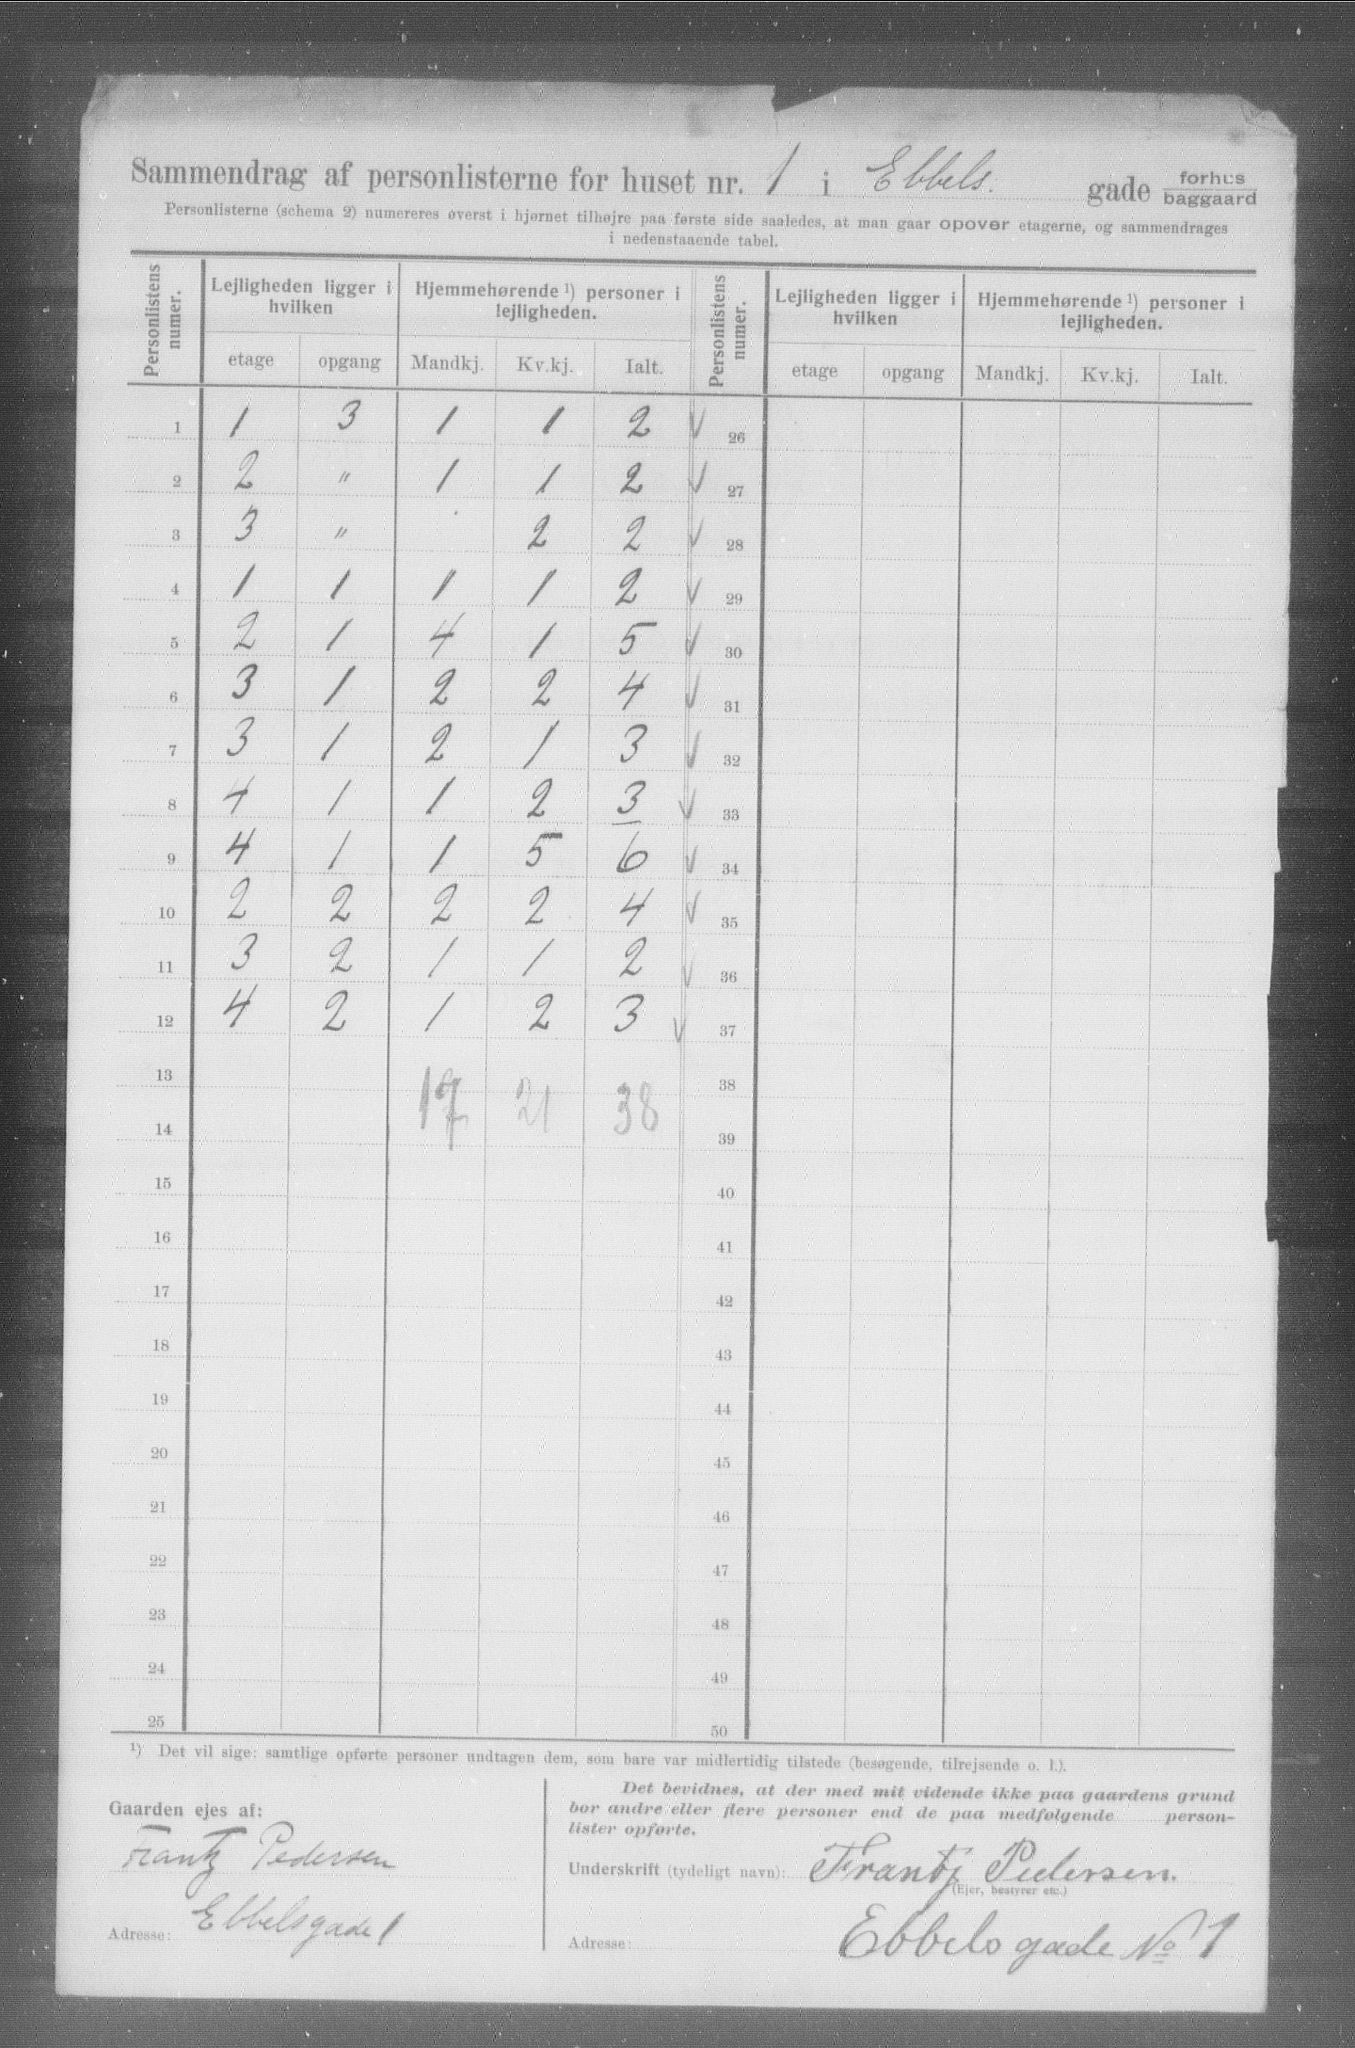 Sammendrag af personlisterne for huset nr. 1 i Ebbels. gade forhus baggaard
Personlisterne (schema 2) numereres øverst i hjørnet tilhøjre paa første side saaledes, at man gaar opover etagerne, og sammendrages
i nedenstaaende tabel.
Personlistens numer. | Lejligheden ligger i hvilken | Hjemmehørende ¹) personer i lejligheden. | Personlistens numer. | Lejligheden ligger i hvilken | Hjemmehørende ¹) personer i lejligheden.
etage opgang Mandkj. Kv.kj. Ialt. etage opgang Mandkj. Kv.kj. Ialt.
1 1 3 1 1 2 √ 26
2 2 " 1 1 2 √ 27
3 3 " 2 2 √ 28
4 1 1 1 1 2 √ 29
5 2 1 4 1 5 √ 30
6 3 1 2 2 4 √ 31
7 3 1 2 1 3 √ 32
8 4 1 1 2 3 √ 33
9 4 1 1 5 6 √ 34
10 2 2 2 2 4 √ 35
11 3 2 1 1 2 √ 36
12 4 2 1 2 3 √ 37
13 38
17 21 38
14 39
15 40
16 41
17 42
18 43
19 44
20 45
21 46
22 47
23 48
24 49
25 50
¹) Det vil sige: samtlige opførte personer undtagen dem, som bare var midlertidig tilstede (besøgende, tilrejsende o. l.).
Gaarden ejes af:
Frantz Pedersen
Adresse: Ebbelsgade 1
Det bevidnes, at der med mit vidende ikke paa gaardens grund
bor andre eller flere personer end de paa medfølgende person-
lister opførte.
Underskrift (tydeligt navn): Frantz Pedersen.
(Ejer, bestyrer etc.)
Adresse: Ebbels gade No 1